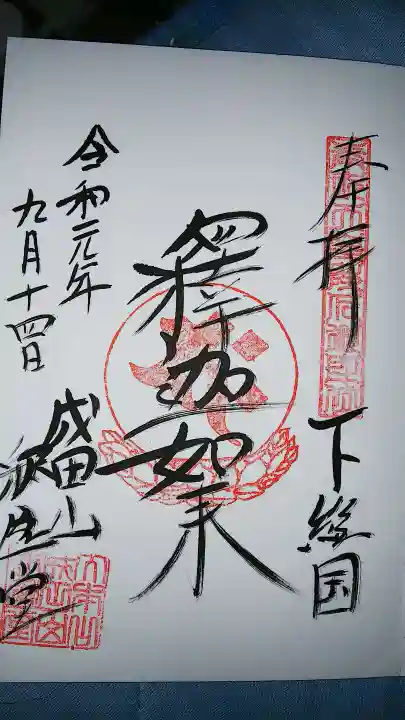 奉拝
下総国
釋迦如来
令和元年
九月十四日
成田山
釈迦堂